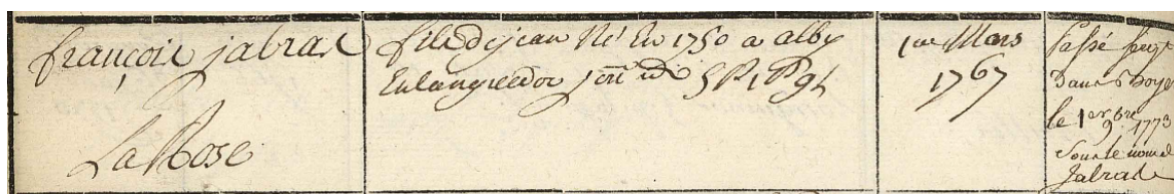 françois jabrac
La Rose
fils de jean Né En 1750 a alby
En languedoc jon id 5 P 1 P 9 L
1er Mars
1767
Passé
Dans
le 1er 9bre 1773
Sous le nom de
Jabrac